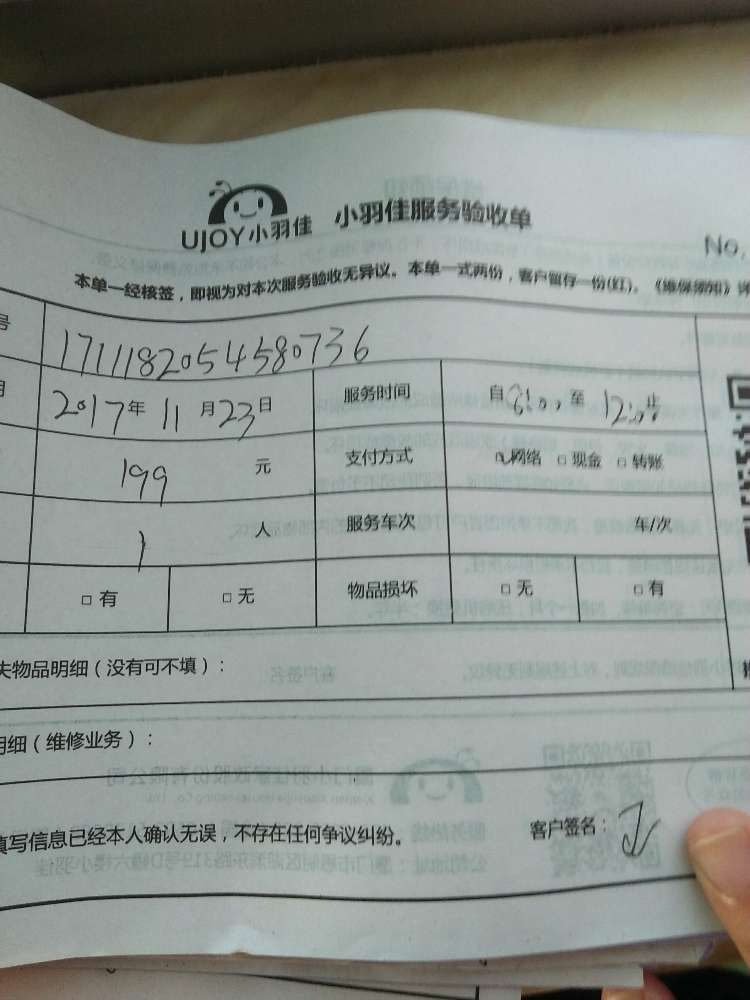 UJOY小羽佳 小羽佳服务验收单
No.
本单一经核签，即视为对本次服务验收无异议。本单一式两份，客户留存一份(红)。《维保须知》详
号 1711182054580736
2017年 11月23日 服务时间 自8:00至 12:00止
199 元 支付方式 网络 □ 现金 □ 转账
1 人 服务车次 车/次
□ 有 □ 无 物品损坏 □ 无 □ 有
失物品明细（没有可不填）：
明细（维修业务）：
填写信息已经本人确认无误，不存在任何争议纠纷。 客户签名：